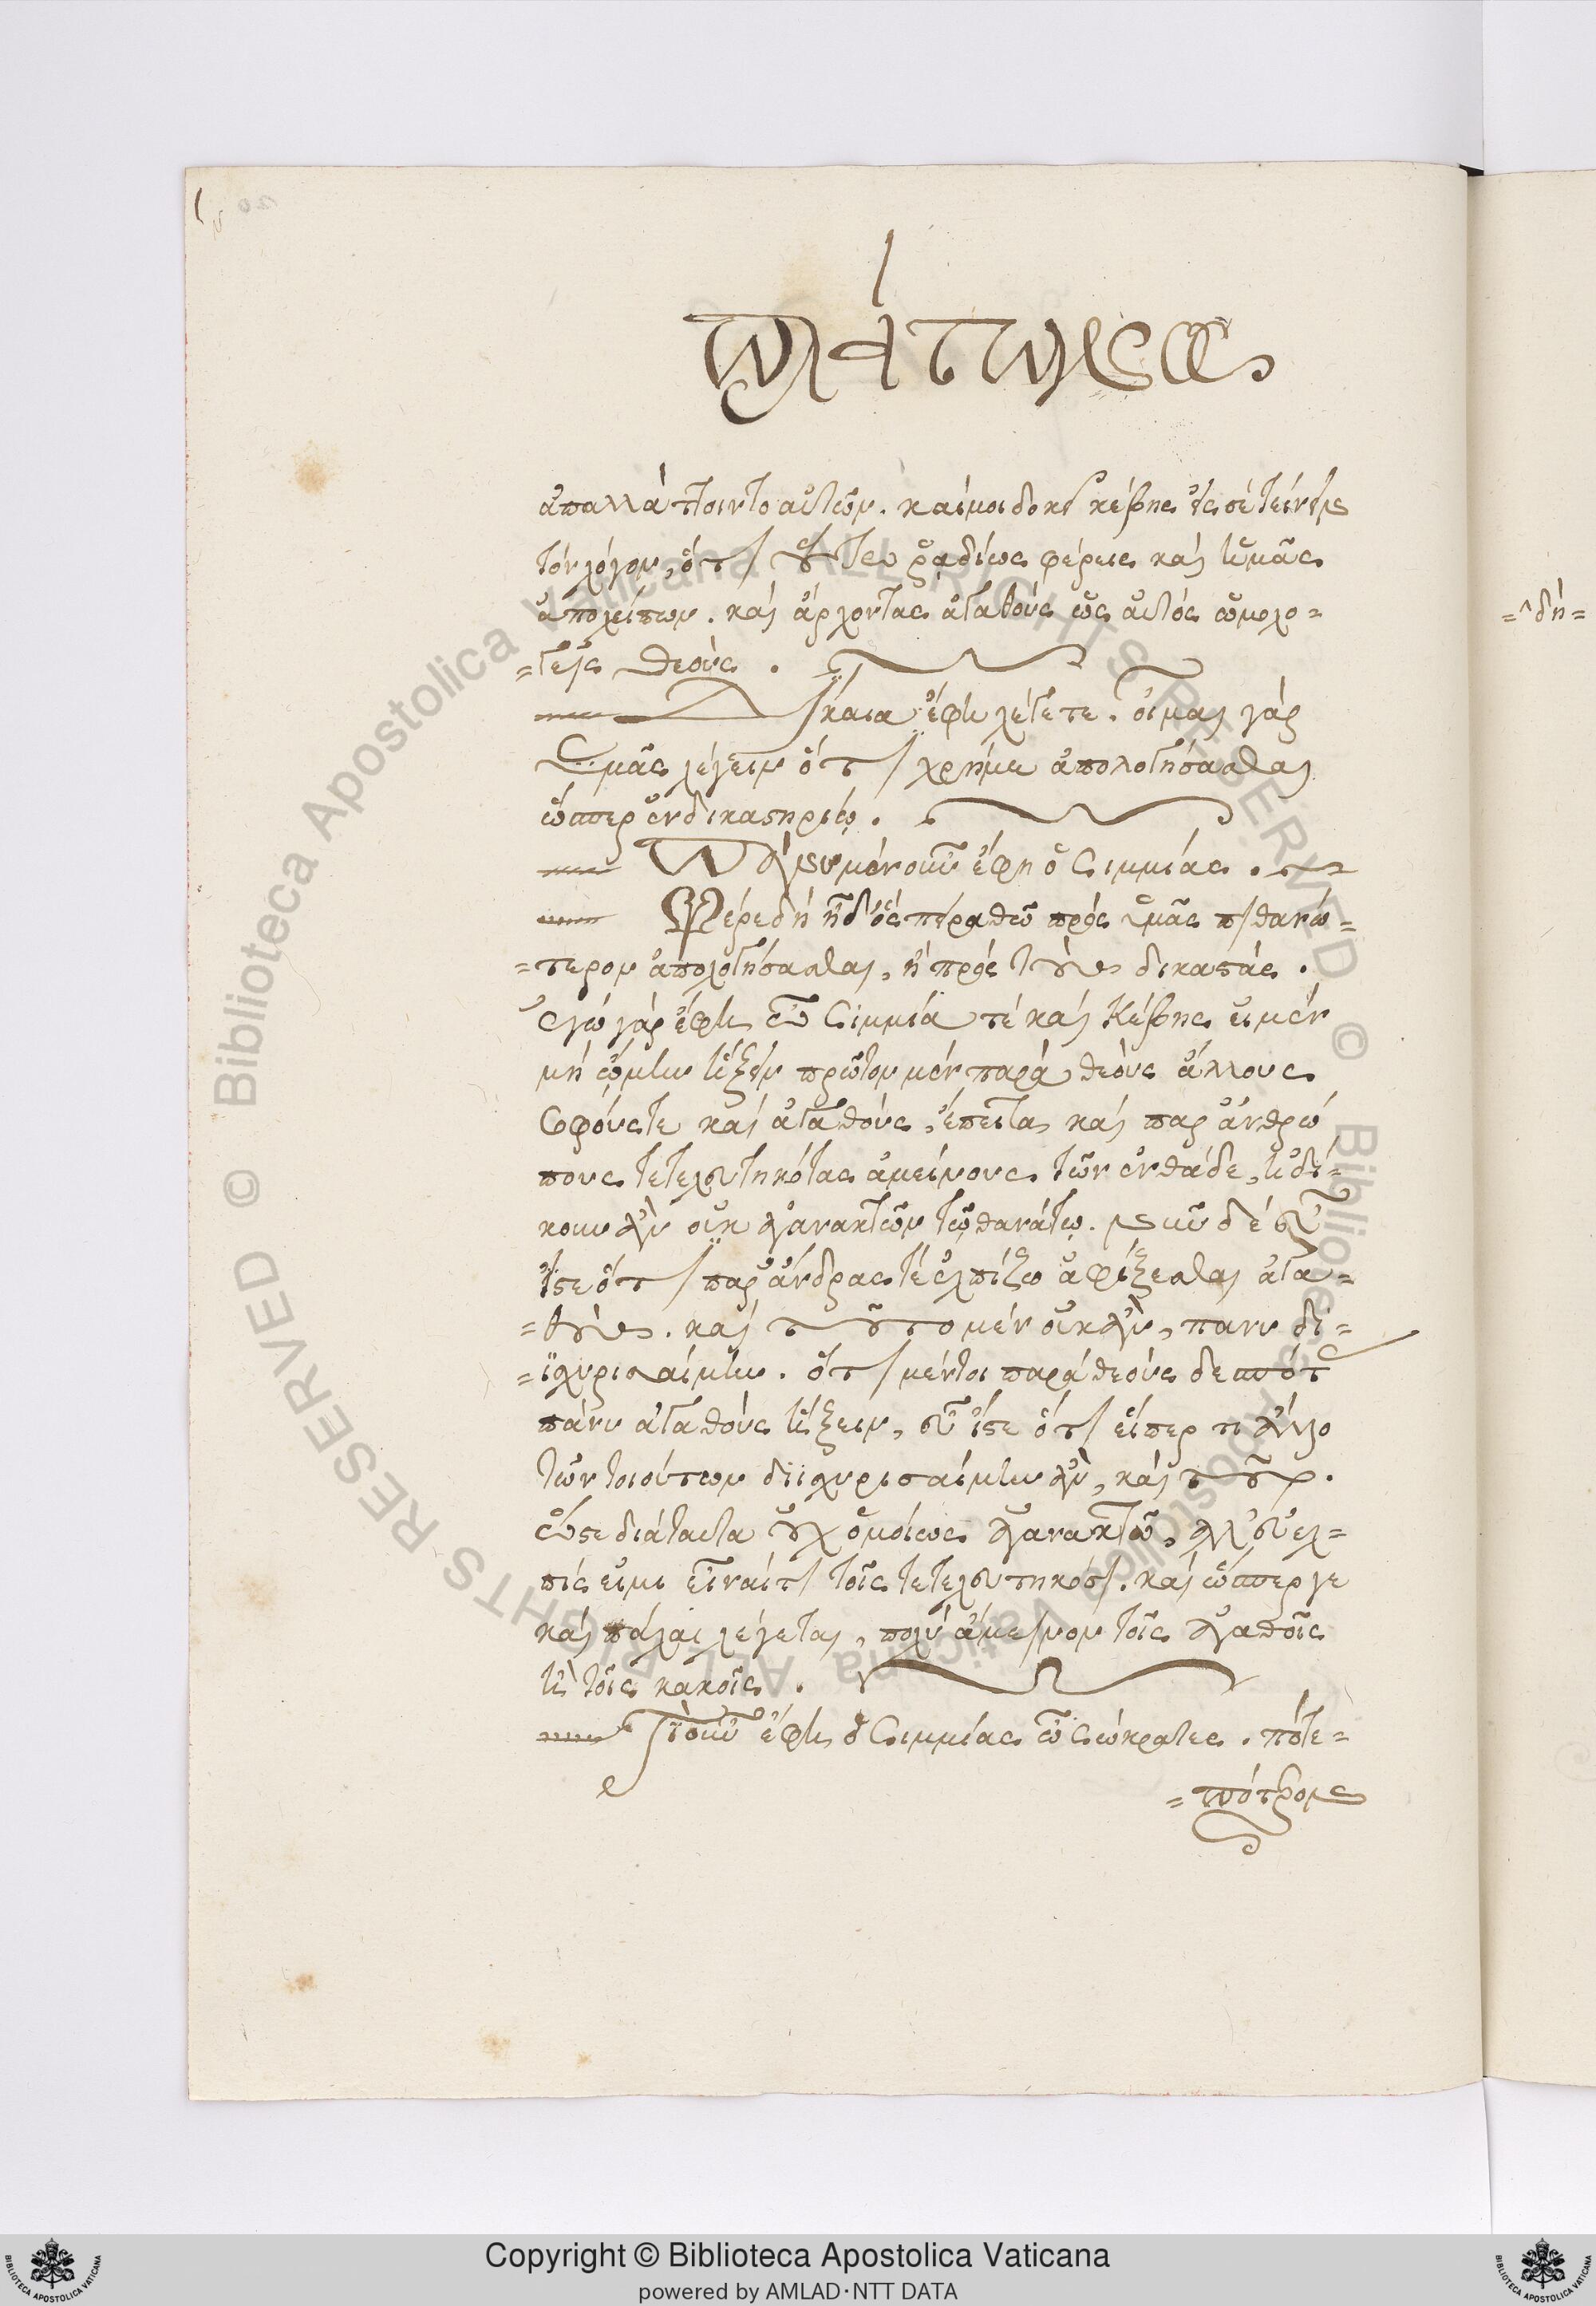 Πλάτωνος
ἀπαλλάττοιντο αὐτῶν. καί μοι δοκεῖ κέβης εἰς σὲ τείνειν
τὸν λόγον, ὅτι οὕτω ῥαδίως φέρεις καὶ ἡμᾶς
ἀπολείπων. καὶ ἄρχοντας ἀγαθοὺς ὡς αὐτὸς ὡμολο=
=γεῖς θεούς.
Δίκαια ἔφη λέγετε. οἶμαι γὰρ
ὑμᾶς λέγειν ὅτι χρή με ἀπολογήσασθαι
ὥσπερ ἐν δικαστηρίῳ.
Πάνυ μὲν οὖν ἔφη ὁ Σιμμίας.
Φέρε δὴ ἦ δ' ὃς πειραθῶ πρὸς ὑμᾶς πιθανώ=
=τερον ἀπολογήσασθαι, ἢ πρὸς τοὺς δικαστάς.
ἐγὼ γὰρ ἔφη ὦ Σιμμία τὲ καὶ Κέβης εἰ μὲν
μὴ ᾤμην ἥξειν πρῶτον μὲν παρὰ θεοὺς ἄλλους
σοφούς τε καὶ ἀγαθούς, ἔπειτα καὶ παρ' ἀνθρώ
πους τετελευτηκότας ἀμείνους τῶν ἐνθάδε, ἠδί=
κουν ἂν οὐκ ἀγανακτῶν τῷ θανάτῳ. νῦν δὲ εὖ
ἴστε ὅτι παρ' ἄνδρας τὲ ἐλπίζω ἀφίξεσθαι ἀγα=
=θούς. καὶ τοῦτο μὲν οὐκ ἂν, πανυ δι=
=ϊσχυρισαίμην. ὅτι μέντοι παρὰ θεοὺς δεσπότ
πάνυ ἀγαθοὺς ἥξειν, εὖ ἴστε ὅτι εἴπερ τι ἄλλο
τῶν τοιούτων διισχυρισαίμην ἂν, καὶ τοῦτο.
ὥστε διὰ ταῦτα οὐχ ὁμοίως ἀγανακτῶ, ἀλλ' εὔελ=
πίς εἰμι εἶναί τι τοῖς τετελευτηκόσι. καὶ ὥσπερ γε
καὶ πάλαι λέγεται, πολὺ ἄμεινον τοῖς ἀγαθοῖς
ἢ τοῖς κακοῖς.
Τί οὖν ἔφη ὁ Σιμμίας ὦ Σώκρατες. πότε=
=πότερον
=δή=